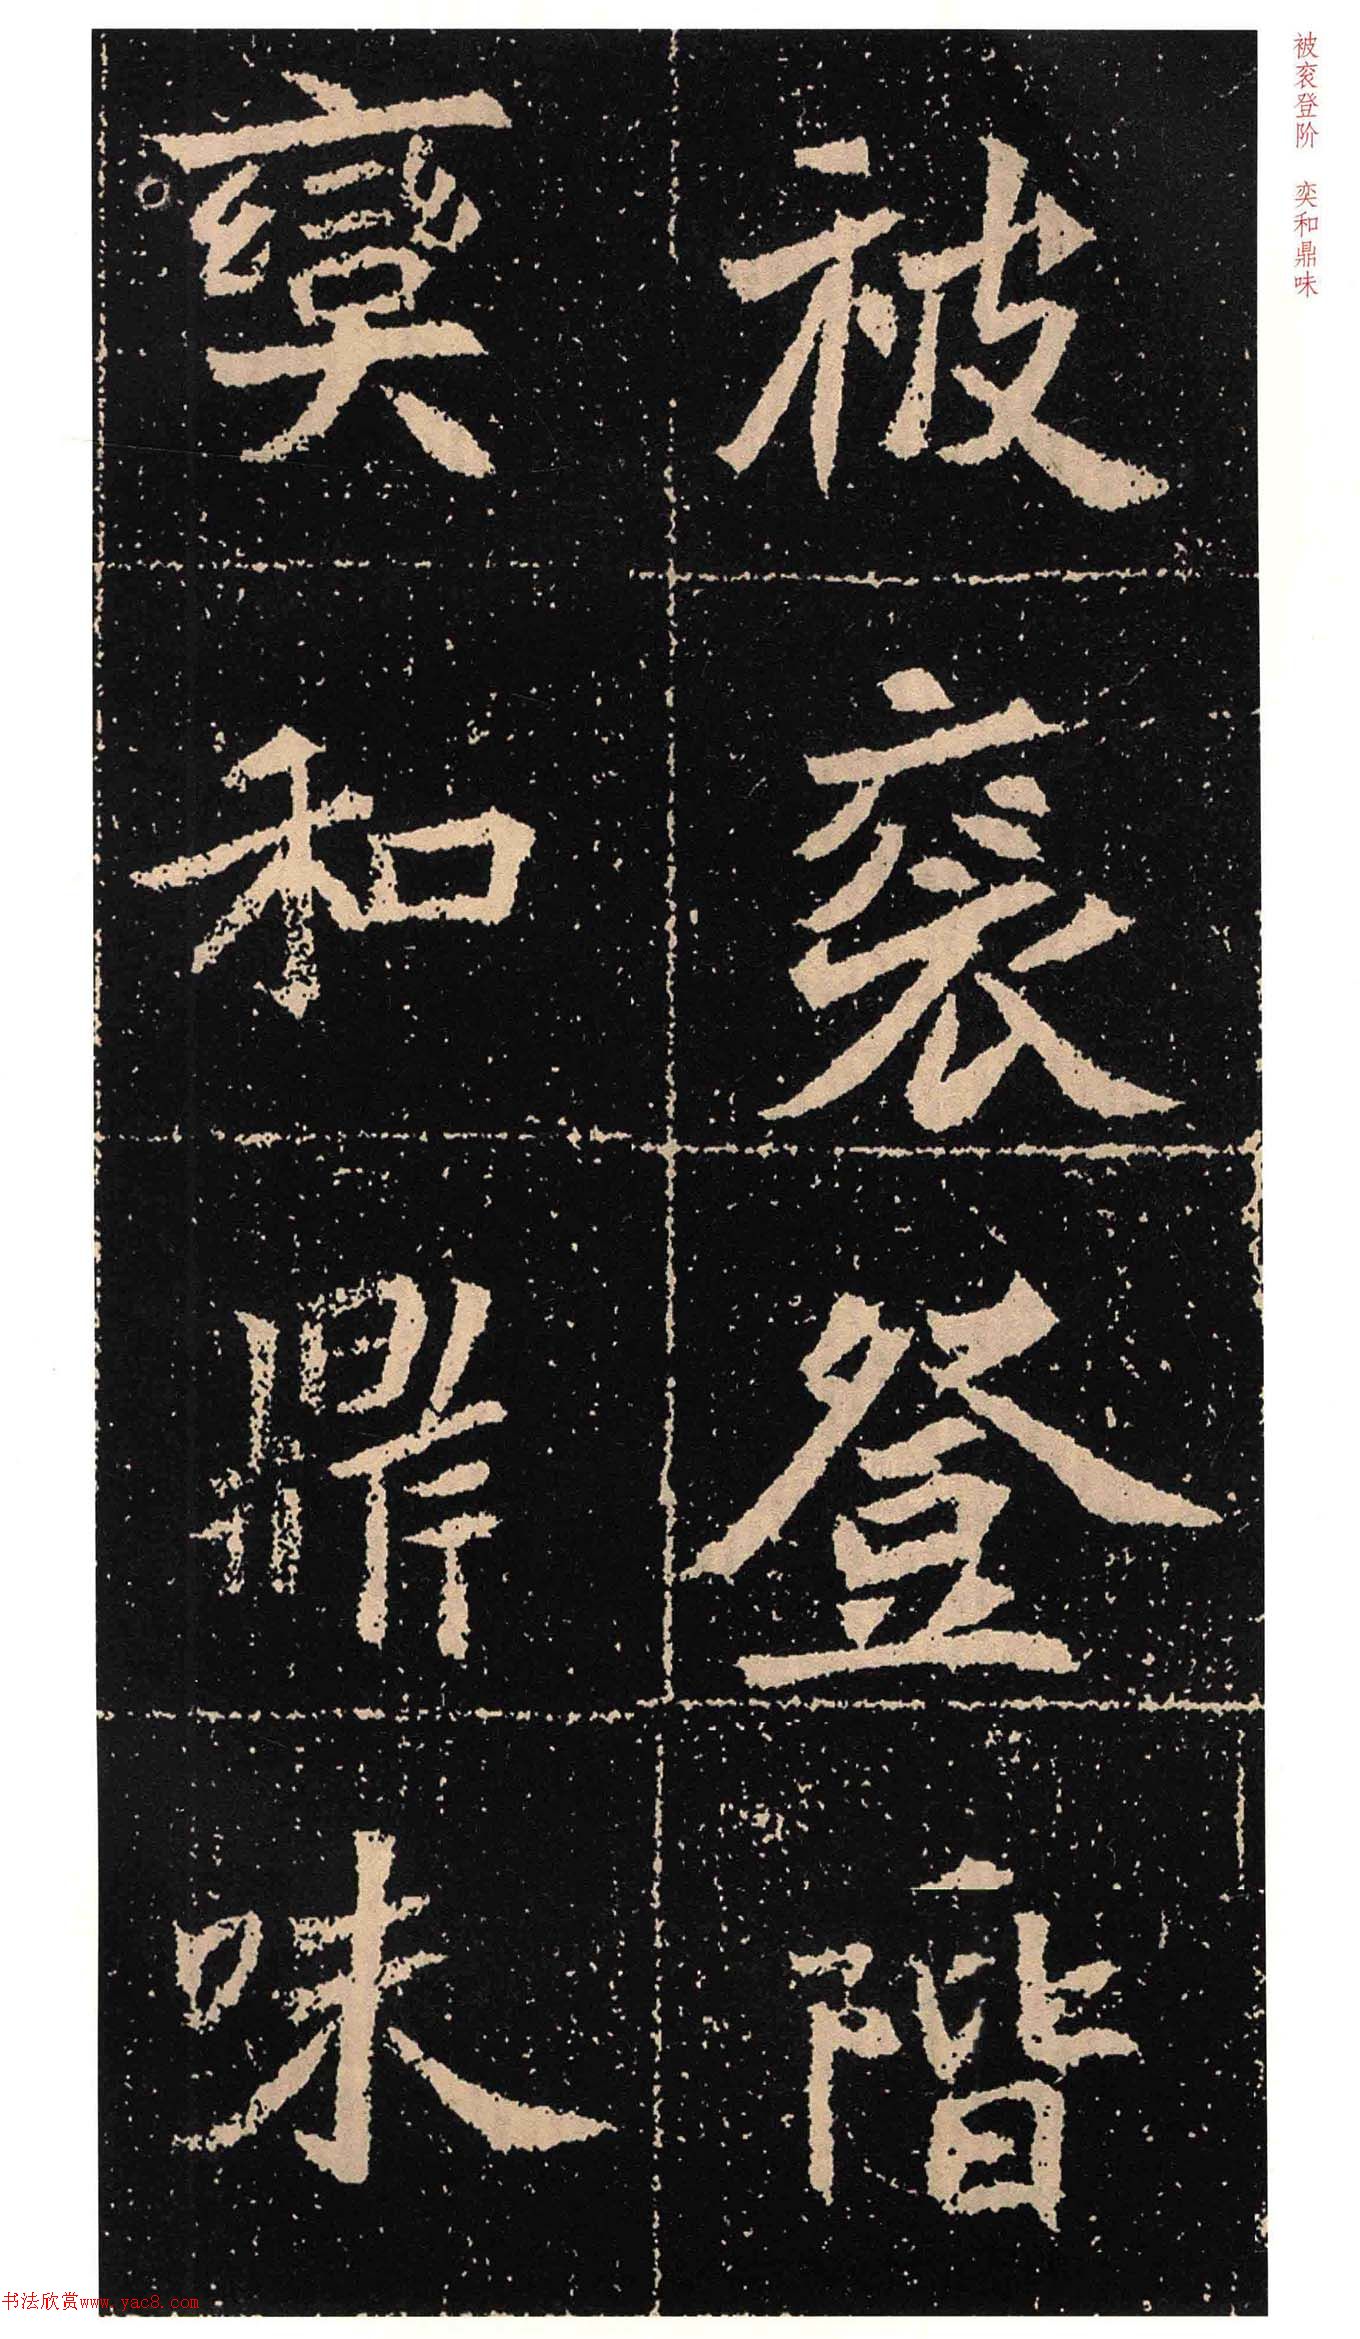 被衮登阶 奕和鼎味
被袞登階
燮和鼎味
书法欣赏www.yac8.com